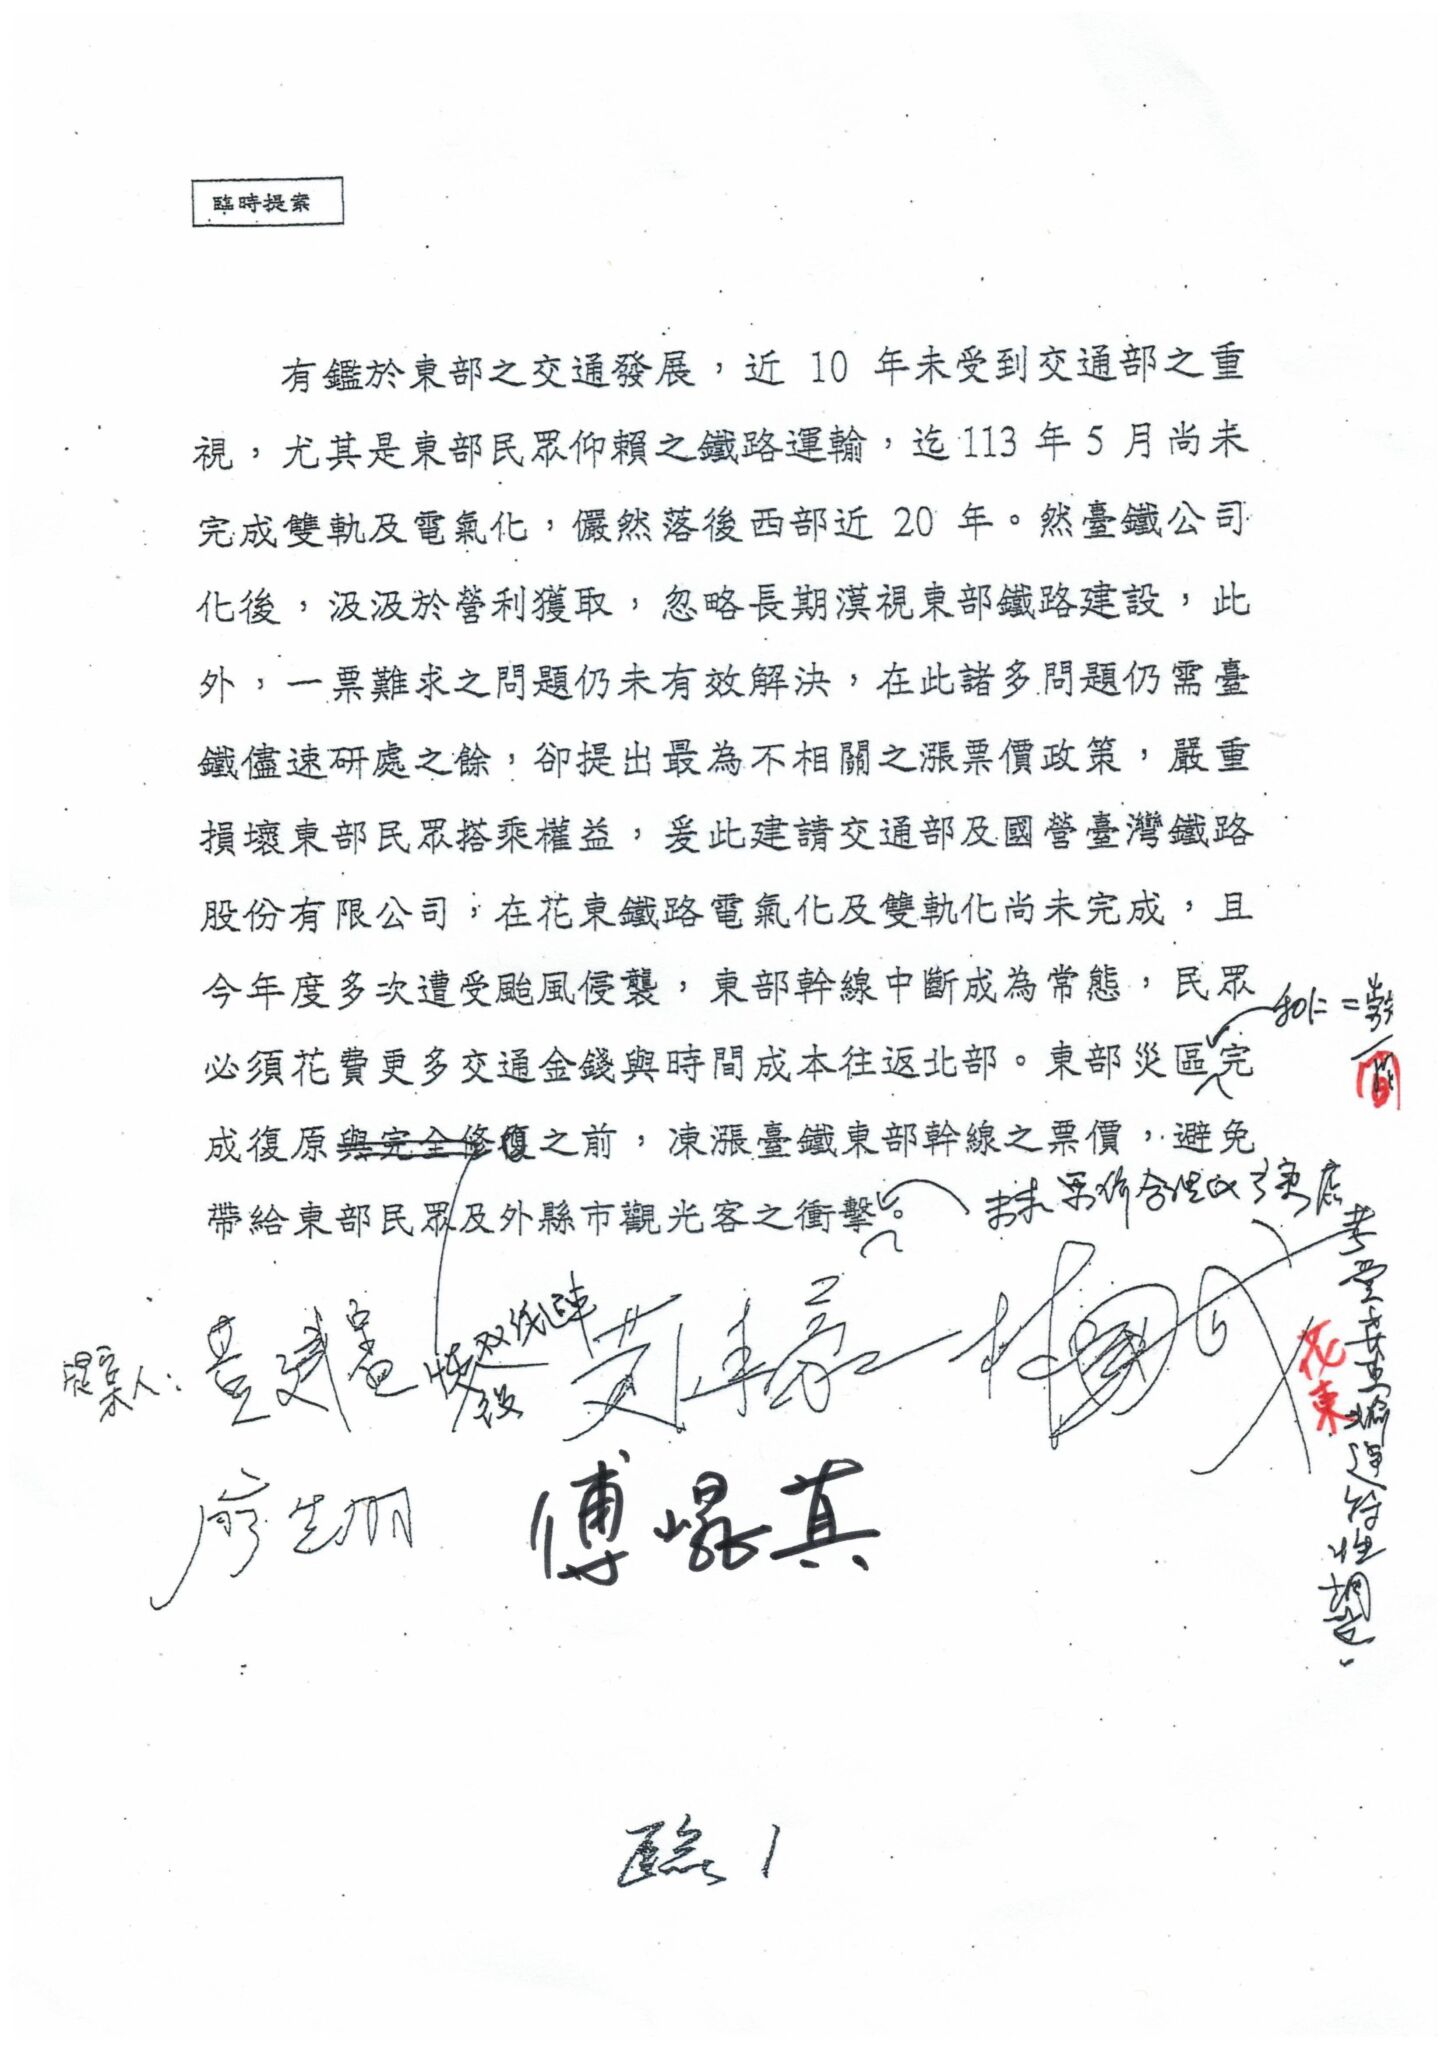 臨時提案
有鑑於東部之交通發展，近 10 年未受到交通部之重
視，尤其是東部民眾仰賴之鐵路運輸，迄113 年 5 月尚未
完成雙軌及電氣化，儼然落後西部近 20 年。然臺鐵公司
化後，汲汲於營利獲取，忽略長期漠視東部鐵路建設，此
外，一票難求之問題仍未有效解決，在此諸多問題仍需臺
鐵儘速研處之餘，卻提出最為不相關之漲票價政策，嚴重
損壞東部民眾搭乘權益，爰此建請交通部及國營臺灣鐵路
股份有限公司，在花東鐵路電氣化及雙軌化尚未完成，且
今年度多次遭受颱風侵襲，東部幹線中斷成為常態，民眾
和仁=崇
必須花費更多交通金錢與時間成本往返北部。東部災區完
成復原與完全修復之前，凍漲臺鐵東部幹線之票價，避免
帶給東部民眾及外縣市觀光客之衝擊。
未來票價合理
提案人：
花東
廖先翔
傅崐萁
臨 1